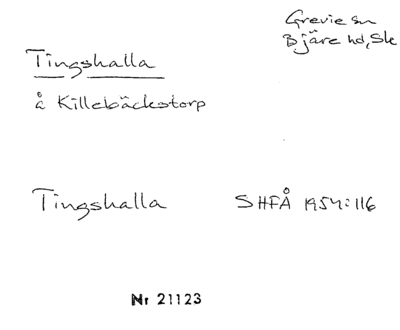 Grevie sn
Bjäre hd, Sk
Tingshalla
å Killebäckstorp
Tingshalla SHFÅ 1954:116
Nr 21123